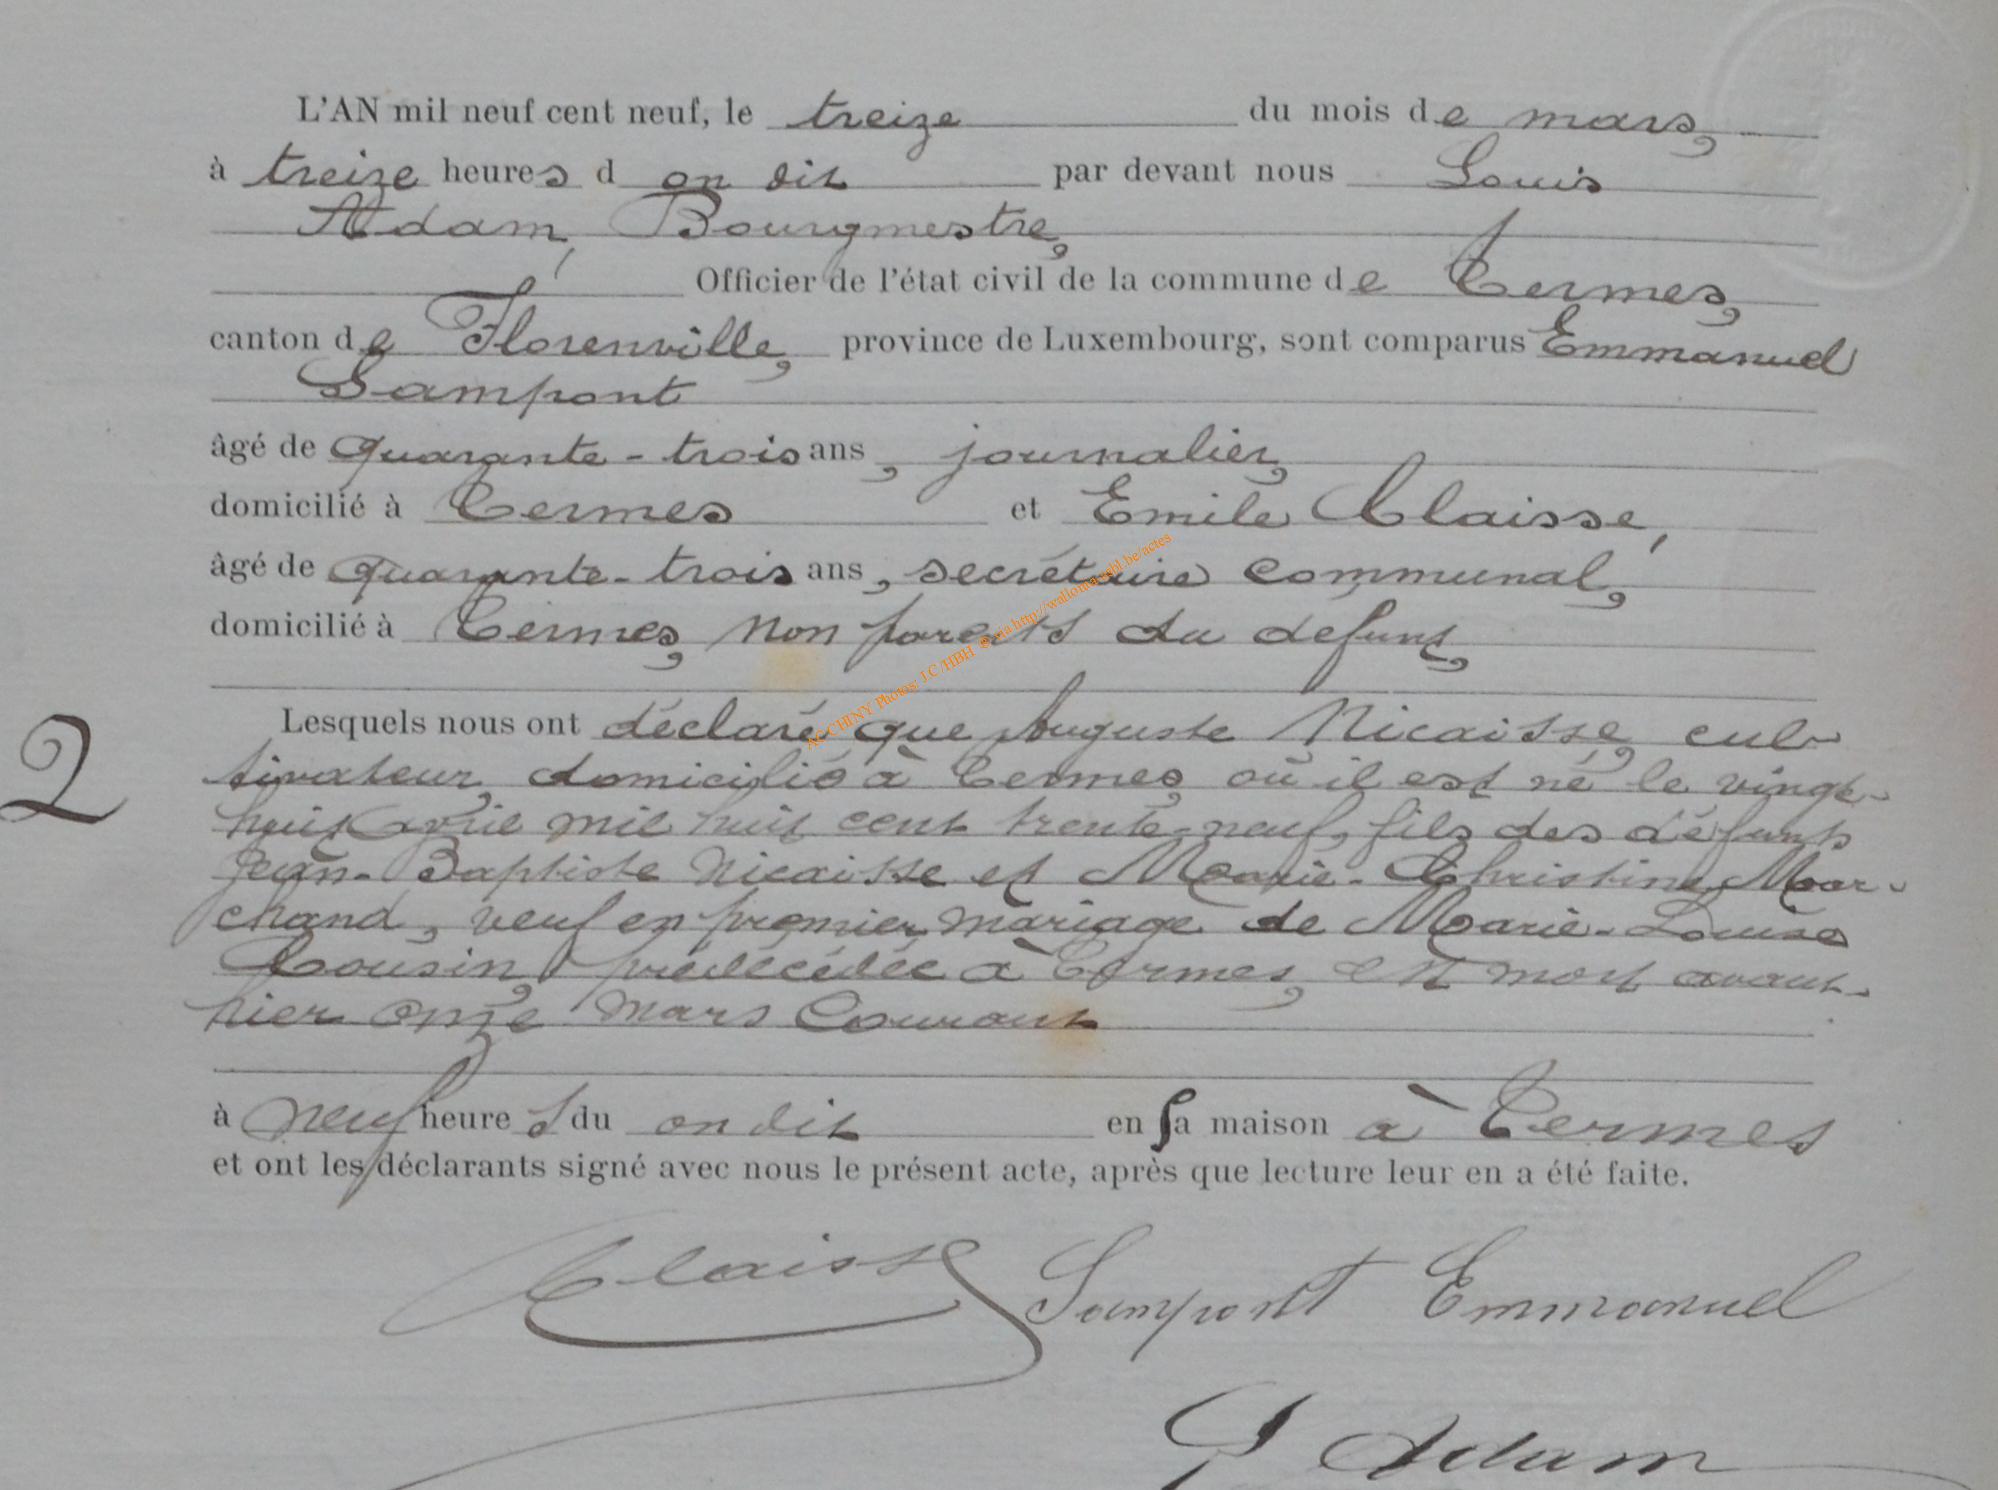 L'AN mil neuf cent neuf, le treize du mois de mars,
à treize heures d on dit par devant nous Louis
Adam, Bourgmestre,
Officier de l'état civil de la commune de Termes,
canton de Florenville, province de Luxembourg, sont comparus Emmanuel
Sampont
âgé de quarante-trois ans, journalier,
domicilié à Termes et Emile Claisse,
âgé de quarante-trois ans, secrétaire communal,
domicilié à Termes, non parents du defunt,
AC CHINY Photos: J.C /HBH © via http://walloma.sebl.be/actes
Lesquels nous ont déclaré que Auguste Nicaisse, cul-
2
tivateur, domicilié à Termes, où il est né le vingt-
huit avril mil huit cent trente-neuf, fils des défunts
Jean-Baptiste Nicaisse et Marie-Christine Mar-
chand, veuf en premier mariage de Marie-Louise
Cousin, prédécédée à Termes, est mort avant-
hier onze mars courant
à neuf heures du on dit en sa maison à Termes
et ont les déclarants signé avec nous le présent acte, après que lecture leur en a été faite.
Claisse Sampont Emmanuel
L Adam